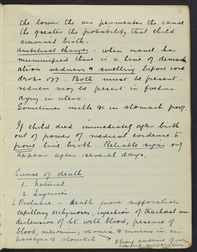 the lower the air permeates the canal
the greater the probability that child
survived birth.
Umbilical changes - when navel has
mummified there is a line of demarc
ation redness & swelling before cord
drops off. Both must be present.
redness may be present in foetus
dying in utero.
Sometimes milk in stomach proof.
If child died immediately after birth
out of power of medical evidence to
prove live birth. Reliable signs only
appear after several days.
Cause of death
1. Natural
2. Injuries
1. Probable - death from suffocation
capillary ecchymoses, injection of trachea
distension of with blood, presence of
blood, meconium, mucus in air
passages